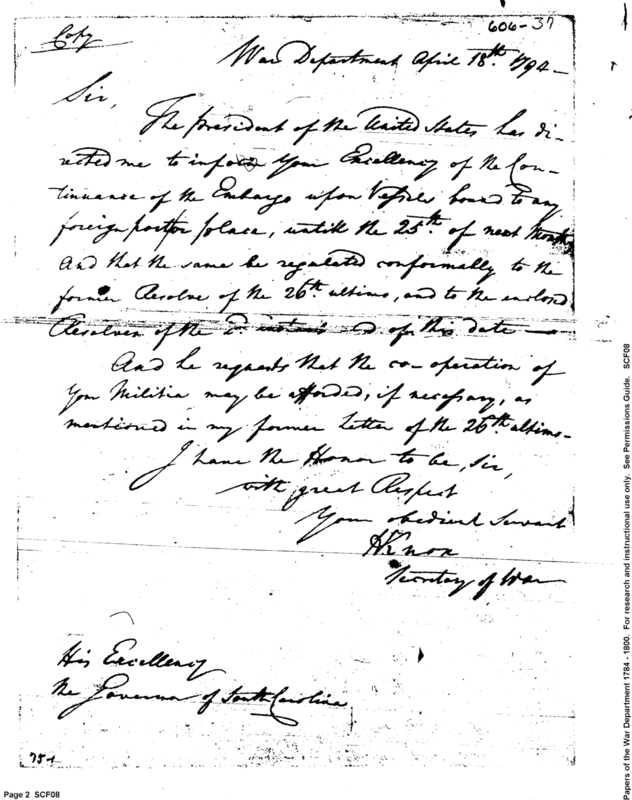 606-37
Copy
War Department April 18th. 1794-
Sir,
The president of the United States has di-
rected me to inform Your Excellency of the Con-
tinuance of the Embargo upon Vessels bound to any
foreign port or place, untill the 25th. of next Month,
And that the same be regulated conformally to the
former Resolve of the 26th. ultimo, and to the enclosed
Resolves of the 2d. and of this date
And he requests that the co-operation of
Your Militia may be afforded, if necessary, as
mentioned in my former Letter of the 26th. ultimo-
I have the Honor to be, Sir,
with great Respect
Your obedient Servant
HKnox
Secretary of War
His Excellency
the Governor of South Carolina
Page 2 SCF08
Papers of the War Department 1784 - 1800. For research and instructional use only. See Permissions Guide. SCF08